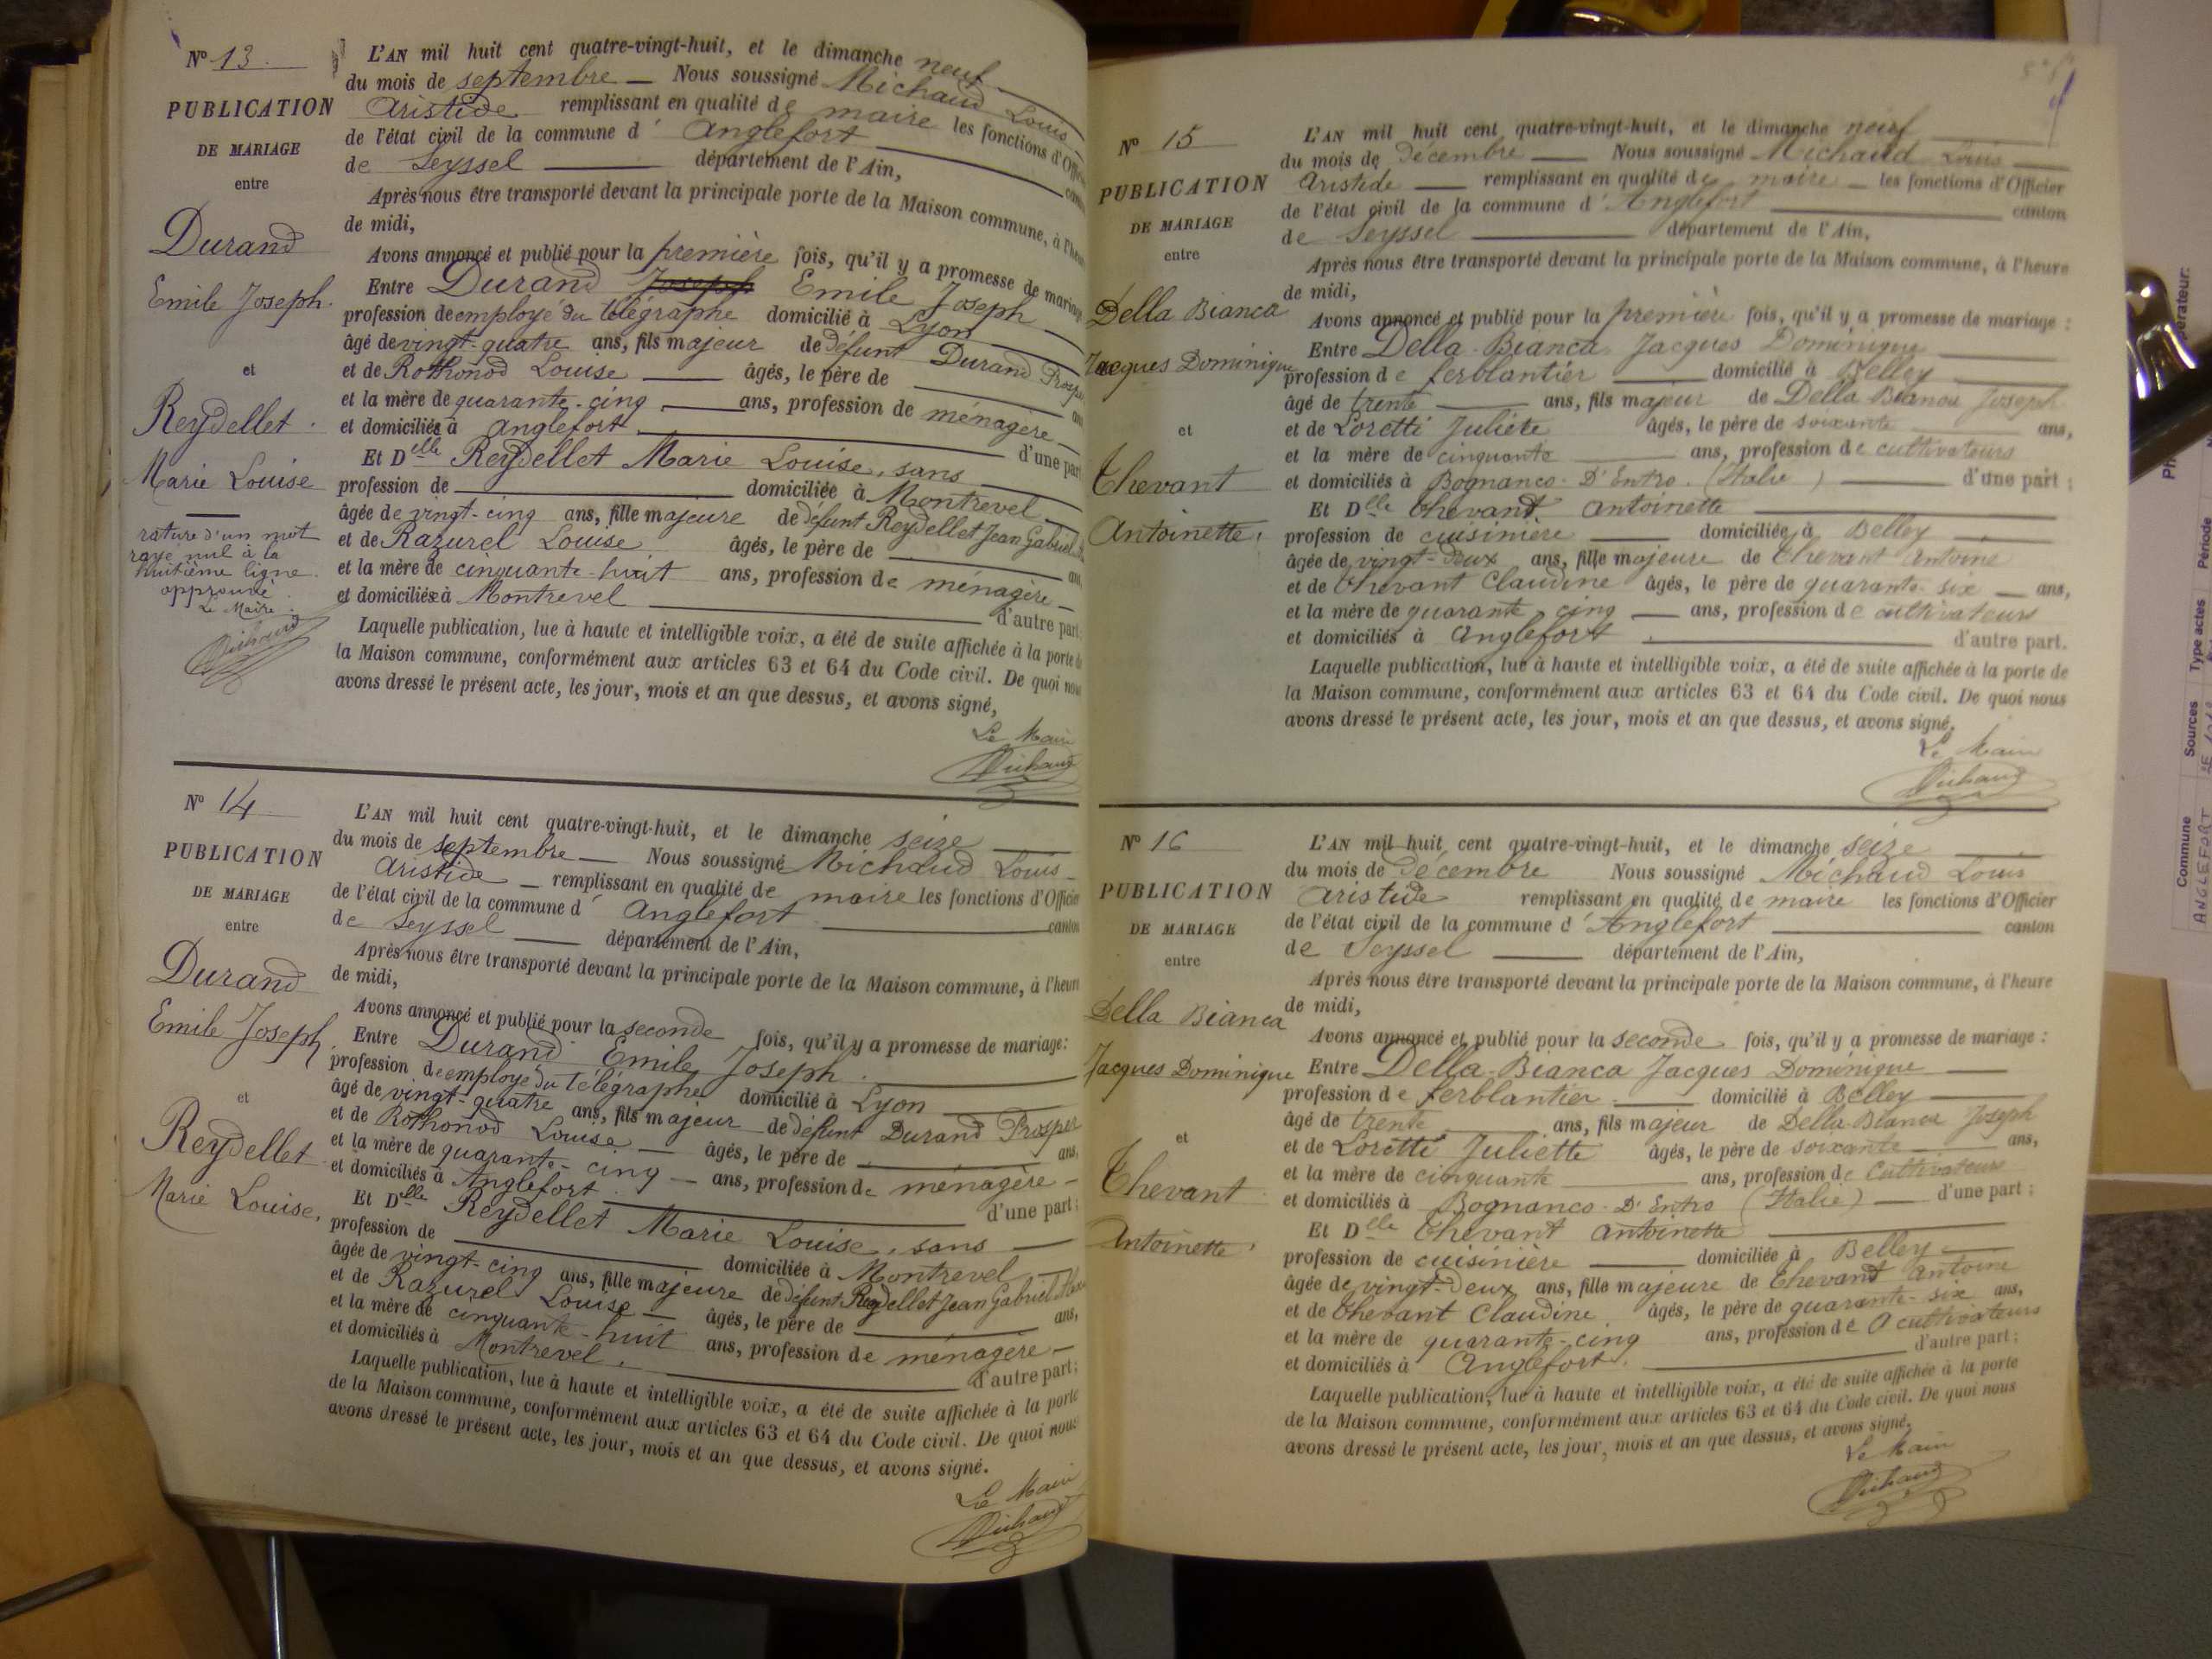 N° 13
PUBLICATION
DE MARIAGE
entre
Durand
Emile Joseph
et
Reydellet
Marie Louise
rature d'un mot
rayé nul à la
huitième ligne
approuvé
Le Maire
Michaud
L'AN mil huit cent quatre-vingt-huit, et le dimanche neuf
du mois de septembre — Nous soussigné Michaud Louis
Aristide remplissant en qualité de maire les fonctions d'Officier
de l'état civil de la commune d' Anglefort canton
de Seyssel département de l'Ain,
Après nous être transporté devant la principale porte de la Maison commune, à l'heure
de midi,
Avons annoncé et publié pour la première fois, qu'il y a promesse de mariage
Entre Durand Joseph Emile Joseph
profession de employé du télégraphe domicilié à Lyon
âgé de vingt-quatre ans, fils majeur de défunt Durand Prosper
et de Rothonod Louise âgés, le père de ans
et la mère de quarante-cinq ans, profession de ménagère
et domiciliés à Anglefort d'une part
Et Delle Reydellet Marie Louise, sans
profession de domiciliée à Montrevel
âgée de vingt-cinq ans, fille majeure de défunt Reydellet Jean Gabriel
et de Razurel Louise âgés, le père de ans
et la mère de cinquante-huit ans, profession de ménagère
et domiciliés à Montrevel d'autre part
Laquelle publication, lue à haute et intelligible voix, a été de suite affichée à la porte de
la Maison commune, conformément aux articles 63 et 64 du Code civil. De quoi nous
avons dressé le présent acte, les jour, mois et an que dessus, et avons signé,
Le Maire
Michaud
N° 14
PUBLICATION
DE MARIAGE
entre
Durand
Emile Joseph
et
Reydellet
Marie Louise,
L'AN mil huit cent quatre-vingt-huit, et le dimanche seize
du mois de septembre — Nous soussigné Michaud Louis
Aristide — remplissant en qualité de maire les fonctions d'Officier
de l'état civil de la commune d' Anglefort canton
de Seyssel département de l'Ain,
Après nous être transporté devant la principale porte de la Maison commune, à l'heure
de midi,
Avons annoncé et publié pour la seconde fois, qu'il y a promesse de mariage :
Entre Durand Emile Joseph
profession de employé du télégraphe domicilié à Lyon
âgé de vingt-quatre ans, fils majeur de défunt Durand Prosper
et de Rothonod Louise — âgés, le père de ans,
et la mère de quarante-cinq — ans, profession de ménagère
et domiciliés à Anglefort d'une part ;
Et Delle Reydellet Marie Louise, sans
profession de domiciliée à Montrevel
âgée de vingt-cinq ans, fille majeure de défunt Reydellet Jean Gabriel
et de Razurel Louise — âgés, le père de ans,
et la mère de cinquante-huit ans, profession de ménagère
et domiciliés à Montrevel d'autre part ;
Laquelle publication, lue à haute et intelligible voix, a été de suite affichée à la porte
de la Maison commune, conformément aux articles 63 et 64 du Code civil. De quoi nous
avons dressé le présent acte, les jour, mois et an que dessus, et avons signé.
Le Maire
Michaud
N° 15
PUBLICATION
DE MARIAGE
entre
Della Bianca
Jacques Dominique
et
Thevant
Antoinette
L'AN mil huit cent quatre-vingt-huit, et le dimanche neuf
du mois de Décembre — Nous soussigné Michaud Louis
Aristide — remplissant en qualité de maire — les fonctions d'Officier
de l'état civil de la commune d' Anglefort canton
de Seyssel département de l'Ain,
Après nous être transporté devant la principale porte de la Maison commune, à l'heure
de midi,
Avons annoncé et publié pour la première fois, qu'il y a promesse de mariage :
Entre Della-Bianca Jacques Dominique
profession de ferblantier domicilié à Belley
âgé de trente ans, fils majeur de Della-Bianca Joseph
et de Loretti Juliete âgés, le père de soixante ans,
et la mère de cinquante ans, profession de cultivateurs
et domiciliés à Bognanco-D'Entro (Italie) d'une part ;
Et Delle Thevant Antoinette
profession de cuisinière domiciliée à Belley
âgée de vingt-deux ans, fille majeure de Thevant Antoine
et de Thevant Claudine âgés, le père de quarante-six — ans,
et la mère de quarante-cinq — ans, profession de cultivateurs
et domiciliés à Anglefort d'autre part.
Laquelle publication, lue à haute et intelligible voix, a été de suite affichée à la porte de
la Maison commune, conformément aux articles 63 et 64 du Code civil. De quoi nous
avons dressé le présent acte, les jour, mois et an que dessus, et avons signé.
Le Maire
Michaud
N° 16
PUBLICATION
DE MARIAGE
entre
Della Bianca
Jacques Dominique
et
Thevant
Antoinette
L'AN mil huit cent quatre-vingt-huit, et le dimanche seize
du mois de Décembre Nous soussigné Michaud Louis
Aristide remplissant en qualité de maire les fonctions d'Officier
de l'état civil de la commune d' Anglefort canton
de Seyssel département de l'Ain,
Après nous être transporté devant la principale porte de la Maison commune, à l'heure
de midi,
Avons annoncé et publié pour la seconde fois, qu'il y a promesse de mariage :
Entre Della-Bianca Jacques Dominique
profession de ferblantier domicilié à Belley
âgé de trente ans, fils majeur de Della-Bianca Joseph
et de Loretti Juliette âgés, le père de soixante ans,
et la mère de cinquante ans, profession de Cultivateurs
et domiciliés à Bognanco-D'Entro (Italie) d'une part ;
Et Delle Thevant Antoinette
profession de cuisinière domiciliée à Belley
âgée de vingt-deux ans, fille majeure de Thevant Antoine
et de Thevant Claudine âgés, le père de quarante-six ans,
et la mère de quarante-cinq ans, profession de cultivateurs
et domiciliés à Anglefort d'autre part ;
Laquelle publication, lue à haute et intelligible voix, a été de suite affichée à la porte
de la Maison commune, conformément aux articles 63 et 64 du Code civil. De quoi nous
avons dressé le présent acte, les jour, mois et an que dessus, et avons signé.
Le Maire
Michaud
Commune Sources Type actes Période
ANGLEFORT